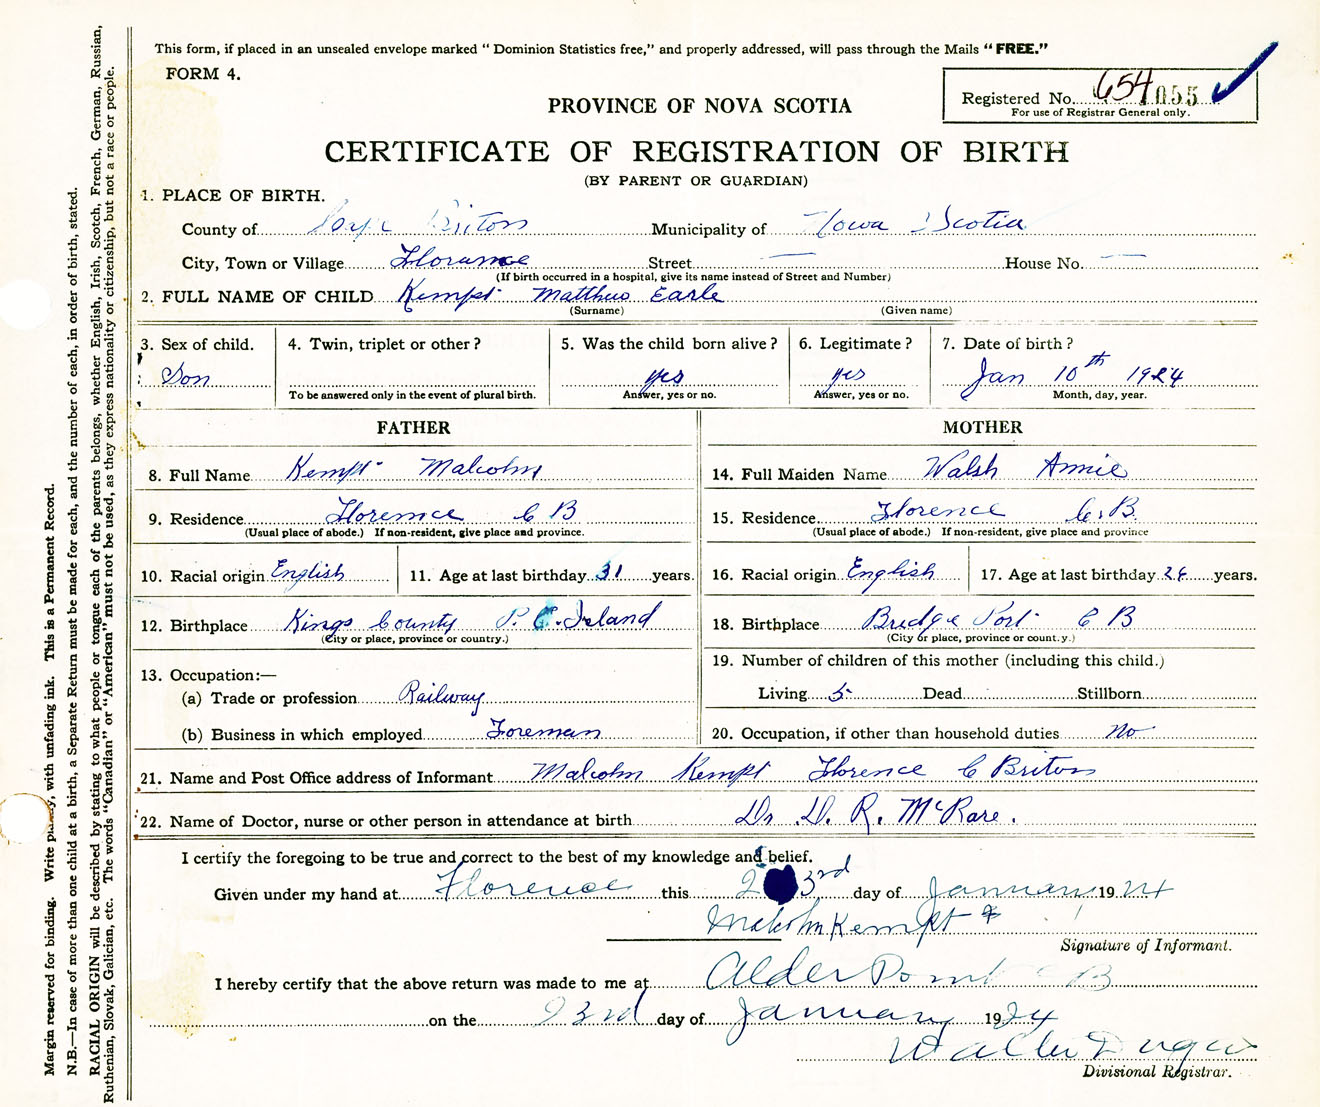 This form, if placed in an unsealed envelope marked "Dominion Statistics free," and properly addressed, will pass through the Mails "FREE."
FORM 4.
Registered No. 654 1055
For use of Registrar General only.
PROVINCE OF NOVA SCOTIA
CERTIFICATE OF REGISTRATION OF BIRTH
(BY PARENT OR GUARDIAN)
1. PLACE OF BIRTH.
County of Cape Briton Municipality of Nova Scotia
City, Town or Village Florance Street — House No. —
(If birth occurred in a hospital, give its name instead of Street and Number)
2. FULL NAME OF CHILD Kempt Matthew Earle
(Surname) (Given name)
3. Sex of child. 4. Twin, triplet or other? 5. Was the child born alive? 6. Legitimate? 7. Date of birth?
Son yes yes Jan 10th 1924
To be answered only in the event of plural birth. Answer, yes or no. Answer, yes or no. Month, day, year.
FATHER MOTHER
8. Full Name Kempt Malcolm
14. Full Maiden Name Walsh Annie
9. Residence Florence C B
(Usual place of abode.) If non-resident, give place and province.
15. Residence Florence C. B.
(Usual place of abode.) If non-resident, give place and province
10. Racial origin English 11. Age at last birthday 31 years.
16. Racial origin English 17. Age at last birthday 26 years.
12. Birthplace Kings County P. E. Island
(City or place, province or country.)
18. Birthplace Bridge Port C B
(City or place, province or count.y.)
13. Occupation:—
(a) Trade or profession Railway
(b) Business in which employed Foreman
19. Number of children of this mother (including this child.)
Living 5 Dead Stillborn
20. Occupation, if other than household duties No
21. Name and Post Office address of Informant Malcolm Kempt Florence C Briton
22. Name of Doctor, nurse or other person in attendance at birth Dr D. R. McRare.
I certify the foregoing to be true and correct to the best of my knowledge and belief.
Given under my hand at Florence this 23rd day of January 1924
Malcolm Kempt
Signature of Informant.
I hereby certify that the above return was made to me at Alder Point C B
on the 23rd day of January 1924
Walter
Divisional Registrar.
Margin reserved for binding. Write plainly, with unfading ink. This is a Permanent Record.
N.B.—In case of more than one child at a birth, a Separate Return must be made for each, and the number of each, in order of birth, stated.
RACIAL ORIGIN will be described by stating to what people or tongue each of the parents belongs, whether English, Irish, Scotch, French, German, Russian,
Ruthenian, Slovak, Galician, etc. The words "Canadian" or "American" must not be used, as they express nationality or citizenship, but not a race or people.